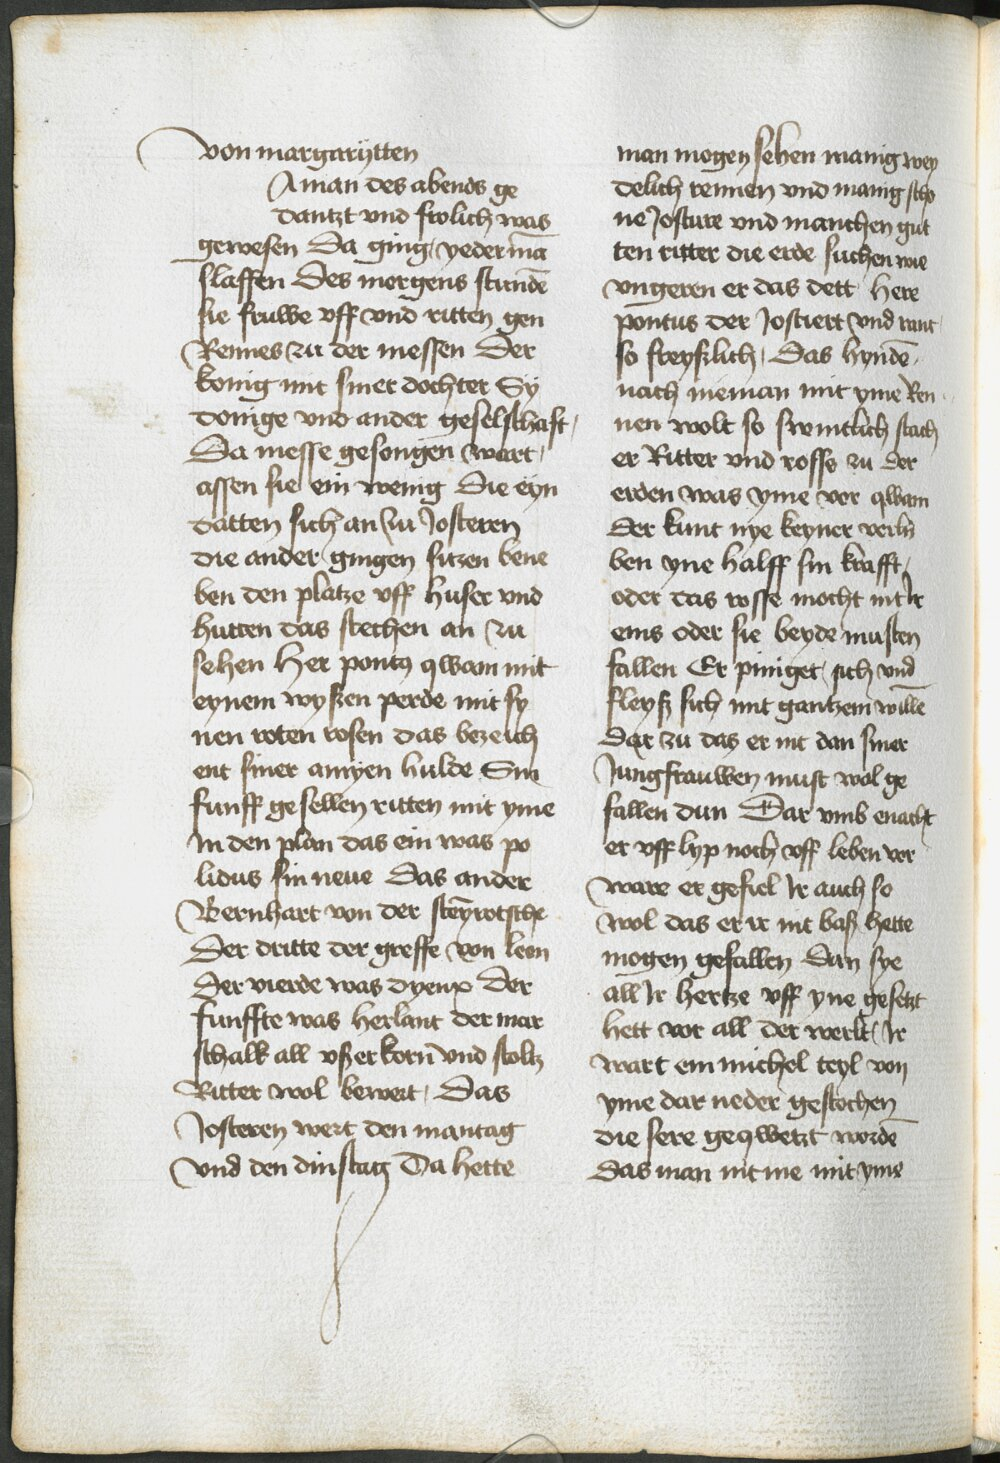 von margarÿtten
A man des abends ge
dantzt vnd frolich was
gewesen Da ging yederma̅
slaffen Des morgens stunde̅
sie fruwe vff vnd ritten gen
Rennes zu der messen Der
konig mit siner dochter Sy
donige vnd ander geselschafft
Da messe gesongen wart
assen sie ein wenig Die eyn
datten sich an zu Josteren
die ander gingen sitzen bene
ben den platze vff huser vnd
hutten das stechen an zu
sehen Her pontꝯ qwam mit
eynem wyßen perde mit sy
nen roten rosen das bezeich
ent siner amyen hulde Sin
funff gesellen ritten mit yme
In den plan das ein was po
lidus sin neue Das ander
Bernhart von der
Der dritte der greffe von leon
Der vierde was dyeux Der
funffte was herlant der mar
schalk all vßerkorn vnd stoltz
Ritter wol bewert Das
Josteren wert den mantag
vnd den dinstag Da hette
man mogen sehen manig wey
delich rennen vnd manig scho
ne Josture vnd manchen gut
ten ritter die erde suchen wie
vngeren er das dett Here
pontus der Jostiert vnd rant
so freyßlich Das hynde̅
nach nieman mit yme Ren
nen wolt so swintlich stach
er Ritter vnd rosse zu der
erden was yme vor qwam
Der kunt nye keyner verli
ben yne halff sin krafft
oder das rosse mocht nit Ir
eins oder sie beyde musten
fallen Er piniget sich vnd
fleyß sich mit gantzem wille̅
Dar zu das er nit dan siner
Jungfrauwen must wol ge
fallen dun Dar vmb enacht
er vff lyp noch vff leben vor
ware er gefiel Ir auch so
wol das er ir nit baß hette
mogen gefallen Dan sye
all Ir hertze vff yne gesetzt
hett vor all der werlt Ir
wart ein michel teyl von
yme dar neder gestochen
die sere geqwetzt worde̅
das man nit me mit yme